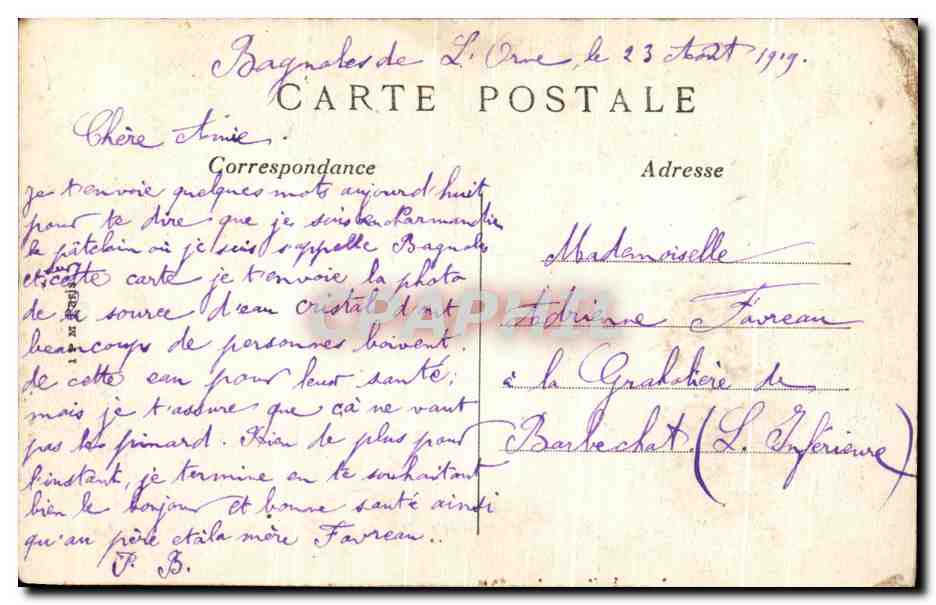 Bagnoles de L'Orne, le 23 Août 1919.
CARTE POSTALE
Chère Amie.
Correspondance
Je t'envoie quelques mots aujourd'huit
pour te dire que je suis en Normandie
le pâtelain où je suis s'appelle Bagnoles
et sur cette carte je t'envoie la photo
de la source d'eau cristale dont
beaucoups de personnes boivent
de cette eau pour leur santé;
mais je t'assure que çà ne vaut
pas le pinard. Rien de plus pour
l'instant, je termine en te souhaitant
bien le bonjour et bonne santé ainsi
qu'au père et à la mère Favreau..
P. B.
Adresse
Mademoiselle
Adrienne Favreau
à la Grabotière de
Barbechat (L. Inférieure)
CPAPHIL